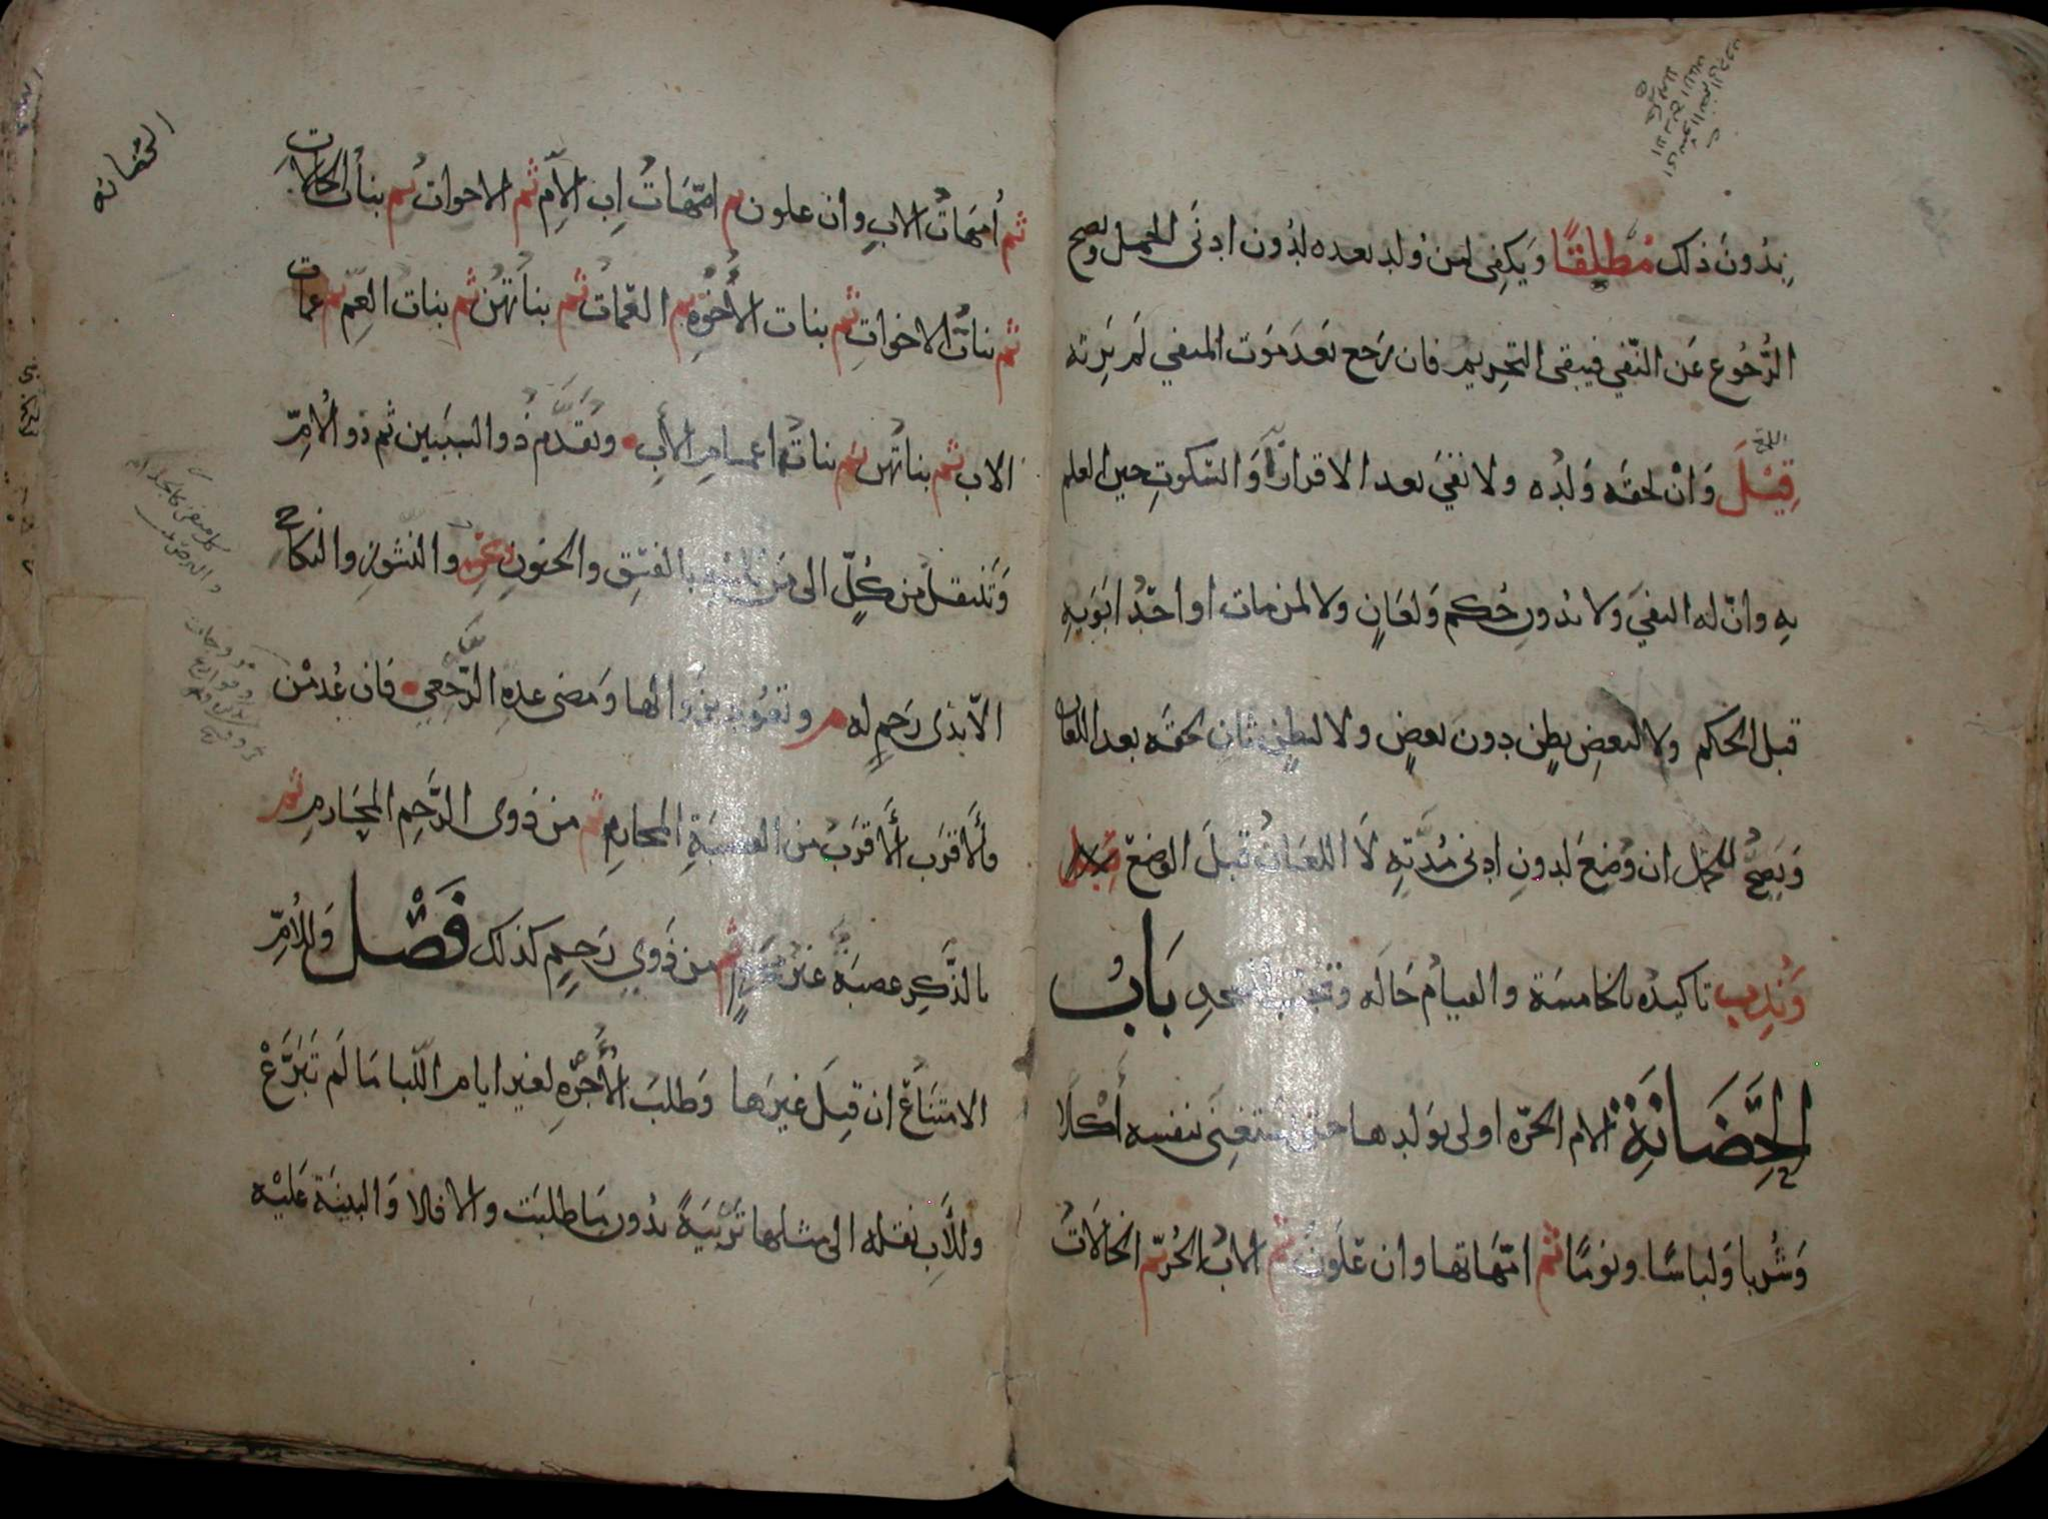 بدُونَ ذلك مُطلقًا وَيكفِى لمن وُلِد بعده لِدُون ادنَى الحمل ويصح
الرُّجُوع عَن النّفي فيبقى التحريم فان رَجع بَعدَ مَوت المنفي لَم يَرِثه
قِيْلَ وَانْ لحقه وَلدُه ولا نفيَ بعد الاقرار أوَ السّكوتِ حين العلم
بهِ وانّ له النفيَ ولا بدُون حُكم وَلعَانٍ ولا لمن مات او احَدُ ابَوَيهِ
قبل الحكم ولا لبعضِ بطنٍ دون بعضٍ ولا لبطنٍ ثانٍ لحقَه بعد اللعان
وَيَصحُّ للحمل ان وُضعَ لِدونِ ادنى مُدّتِهِ لَا اللعَانُ قبلَ الوضع قيل
وَنُدِبَ تاكيدُه بالخامسَة والقيامُ حَالَه وتجنب المسجدِ بَابُ
الحَضَانَةِ الام الحرّه اولى بوَلدِها حتى يستغنىَ بنفسه أكْلًا
وَشُربا وَلباسًا ونومًا ثم امّهَاتها وان عَلَونَ ثم الابُ الحُرّ ثم الخالَاتُ
الحضانه
ثم أُمّهَاتُ الابِ وان علون ثم امّهَاتُ ابِ الأمِّ ثم الاخواتُ ثم بناتُ الخالاتِ
ثم بناتُ الاخواتِ ثم بنات الأُخوّهِ ثم العمّاتُ ثم بناتُهُنّ ثم بناتُ العَمّ ثم عمّاتُ
الاب ثم بناتُهُن ثم بناتُ اعمامِ الأبِ ويُقدَّم ذُو السبَبين ثم ذو الأُمِّ
وَتَنتقلُ من كُلٍّ الى مَن يليه بالفِسق والجنونِ ونحوه والنشوز والنكاح
الّا بذى رَحِمٍ له م وتعُودُ بزوالها وَمضى عده الرّجعي فَان عُدِمْنَ
فالأقرَب الأقرَبُ من العصَبَةِ المحارم ثم من ذوى الرَّحِم المحَارمِ ثم
بالذَّكَرِ عصبَة غيرُ محرَمٍ ثم من ذَوي رَحِمٍ كذلك فَصْل وَللأُمِّ
الامتنَاعُ ان قبِلَ غيرَها وَطلبُ الأُجرَه لغير ايام اللّبا مَا لَم تَبَرَّعْ
وللأبِ نقله الى مثلها تَربيَةً بدُون مَا طلبَت والا فلا وَالبينَة عَليْه